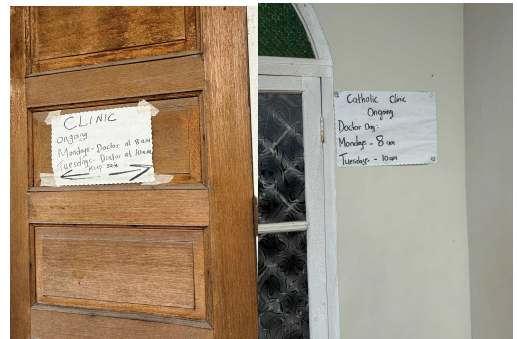 CLINIC
Ongoing
Mondays - Doctor at 8am
Tuesdays - Doctor at 10am
Keep safe
Catholic Clinic
Ongoing
Doctor Day:
Mondays - 8am
Tuesdays - 10am